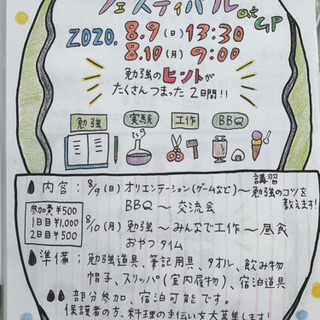 フェスティバル at GP
2020. 8.9(日) 13:30
8.10(月) 9:00
勉強のヒントが
たくさんつまった2日間!!
勉強 実験 工作 BBQ
内容:8/9(日)オリエンテーション(ゲームなど)〜講習 勉強のコツを教えます!
BBQ〜交流会
参加費¥500
1日目¥1,000
2日目¥500
8/10(月)勉強〜みんなで工作〜昼食
おやつタイム
準備:勉強道具、筆記用具、タオル、飲み物
帽子、スリッパ(室内履物)、宿泊道具
部分参加、宿泊可能です。
保護者の方、料理の手伝いを大募集します!